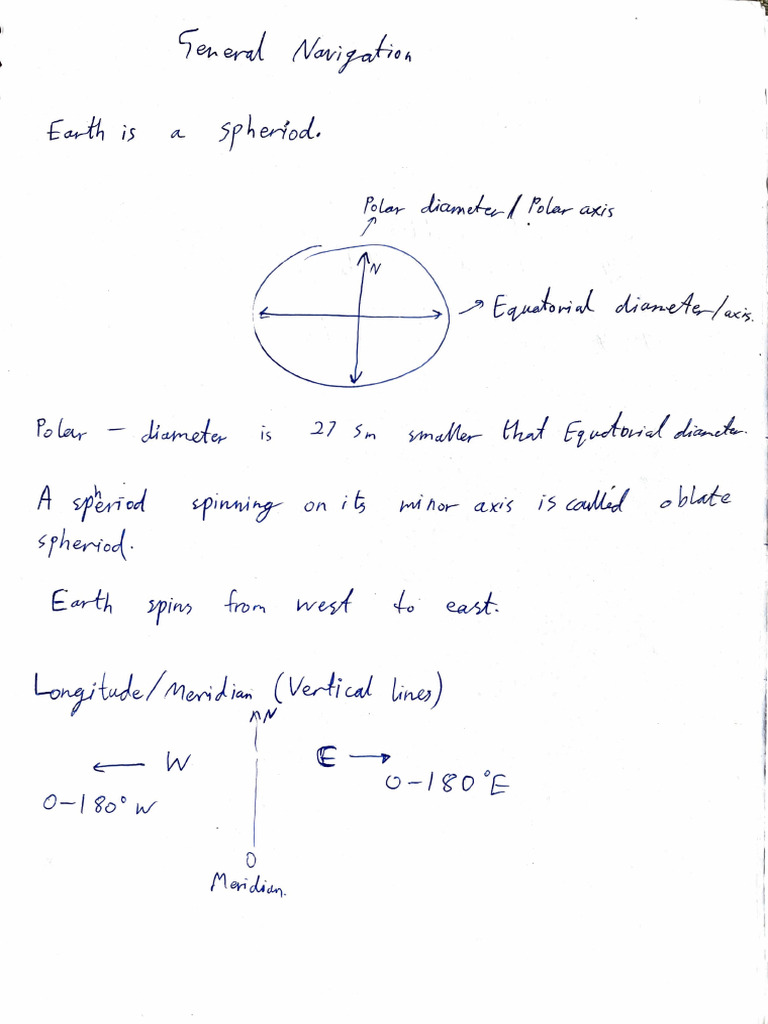 General Navigation
Earth is a spheriod.
Polar diameter/Polar axis
N
Equatorial diameter/axis.
Polar - diameter is 27 Sm smaller that Equatorial diameter.
A spheriod spinning on its minor axis is called oblate
spheriod.
Earth spins from west to east.
Longitude/Meridian (Vertical lines)
N
W
E
0-180°W
0-180°E
0
Meridian.